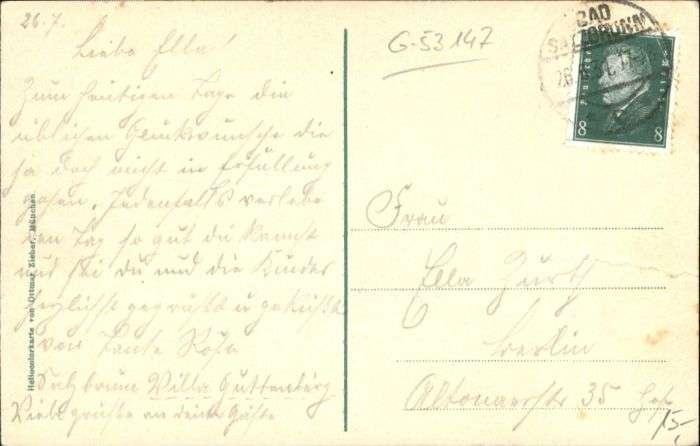 26.7.
Liebe Ella!
Zum heutigen Tage die
üblichen Glückwünsche die
ja doch nicht in Erfüllung
gehen. Jedenfalls verlebe
den Tag so gut du kannst
und sei du und die Kinder
herzlichst gegrüßt u geküßt
von Tante Rosa
Salzbrunn Villa Guttenberg
Viele Grüße an deine Gäste
Heliocolorkarte von Ottmar Zieher, München
G-53147
BAD
SALZBRUNN
26
Deutsches Reich
8 8
Frau
Ella
Berlin
Altonaerstr 35
15-